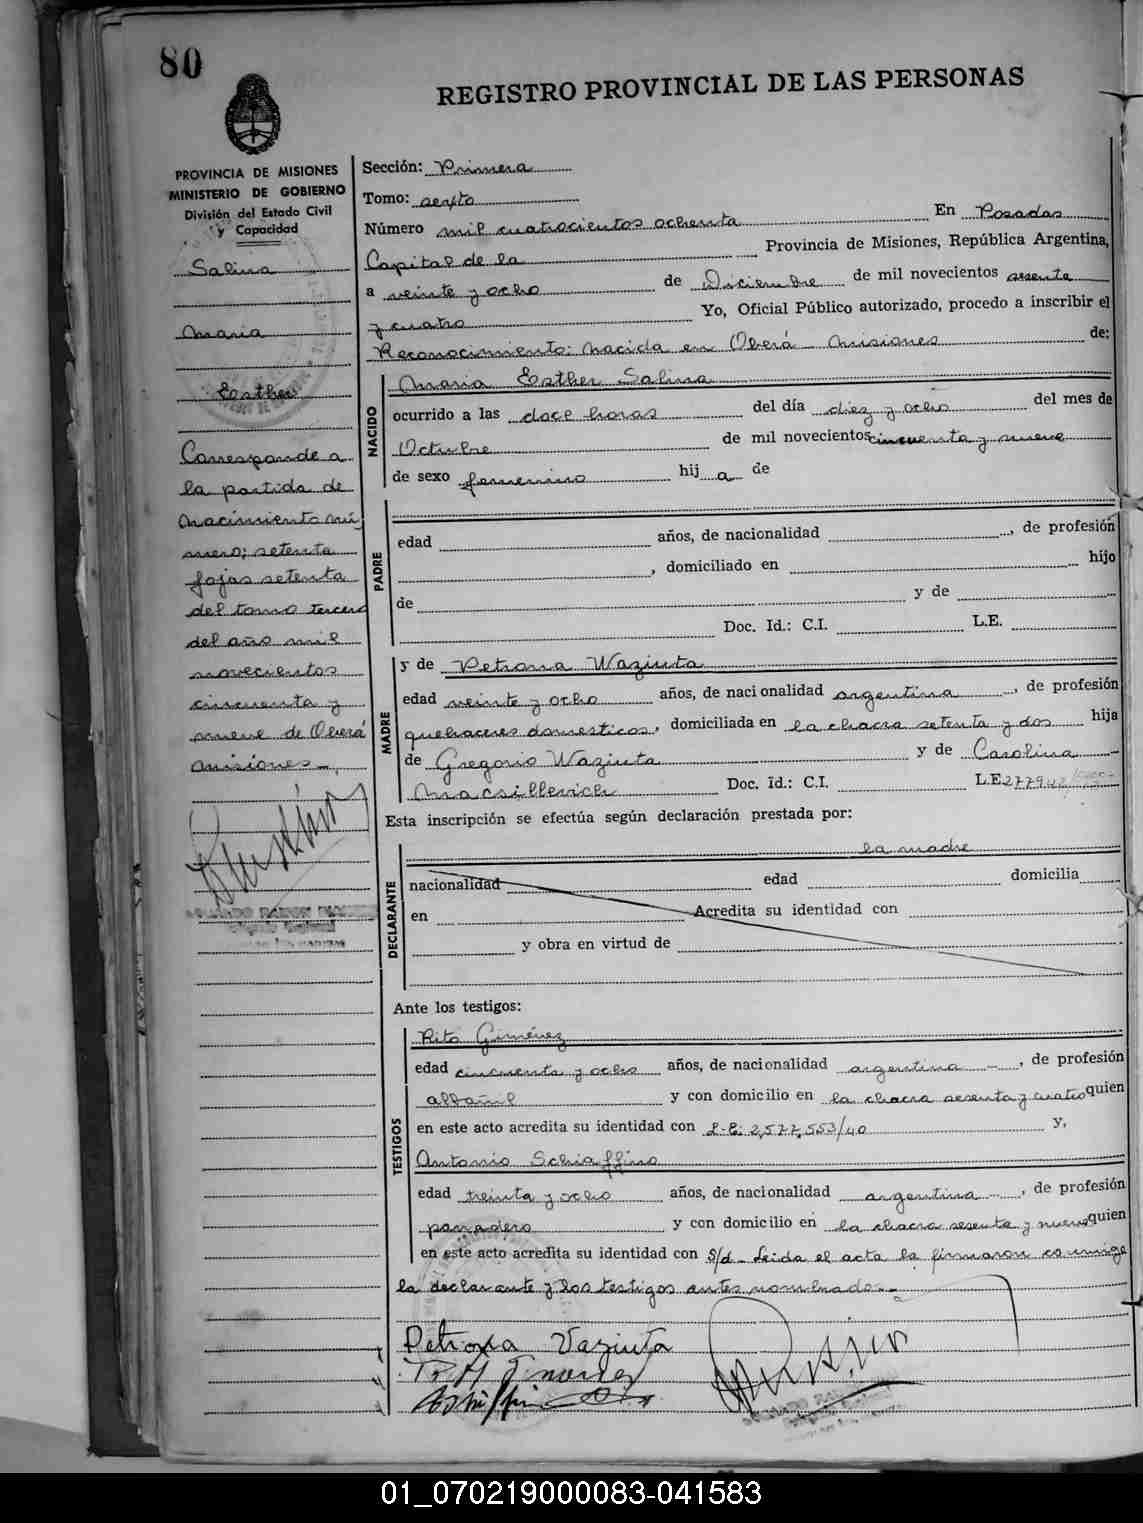 80
REGISTRO PROVINCIAL DE LAS PERSONAS
PROVINCIA DE MISIONES
MINISTERIO DE GOBIERNO
División del Estado Civil
y Capacidad
Salina
Maria
Esther
Corresponde a
la partida de
nacimiento nú
mero; setenta
fojas setenta
del tomo tercero
del año mil
novecientos
cincuenta y
nueve de Oberá
Misiones -
Sección: Primera
Tomo: sexto
Número mil cuatrocientos ochenta En Posadas
Capital de la Provincia de Misiones, República Argentina,
a veinte y ocho de Diciembre de mil novecientos sesenta
y cuatro Yo, Oficial Público autorizado, procedo a inscribir el
Reconocimiento: nacida en Oberá - Misiones de:
NACIDO
Maria Esther Salina
ocurrido a las doce horas del día diez y ocho del mes de
Octubre de mil novecientos cincuenta y nueve
de sexo femenino hij a de
PADRE
edad años, de nacionalidad , de profesión
, domiciliado en hijo
de y de
Doc. Id.: C.I. L.E.
MADRE
y de Petrona Waziuta
edad veinte y ocho años, de nacionalidad argentina , de profesión
quehaceres domesticos, domiciliada en la chacra setenta y dos hija
de Gregorio Waziuta y de Carolina
Macsillevich Doc. Id.: C.I. L.E.
Esta inscripción se efectúa según declaración prestada por:
DECLARANTE
la madre
nacionalidad edad domicilia
en Acredita su identidad con
y obra en virtud de
Ante los testigos:
TESTIGOS
Rito Giménez
edad cincuenta y ocho años, de nacionalidad argentina - , de profesión
albañil y con domicilio en la chacra sesenta y cuatro quien
en este acto acredita su identidad con L.E. 2,577,553/40 y,
Antonio Schiaffino
edad treinta y ocho años, de nacionalidad argentina - , de profesión
panadero y con domicilio en la chacra sesenta y nueve quien
en este acto acredita su identidad con S/d - Leida el acta la firmaron conmigo
la declarante y los testigos antes nombrados.-
Petrona Vaziuta
01_070219000083-041583